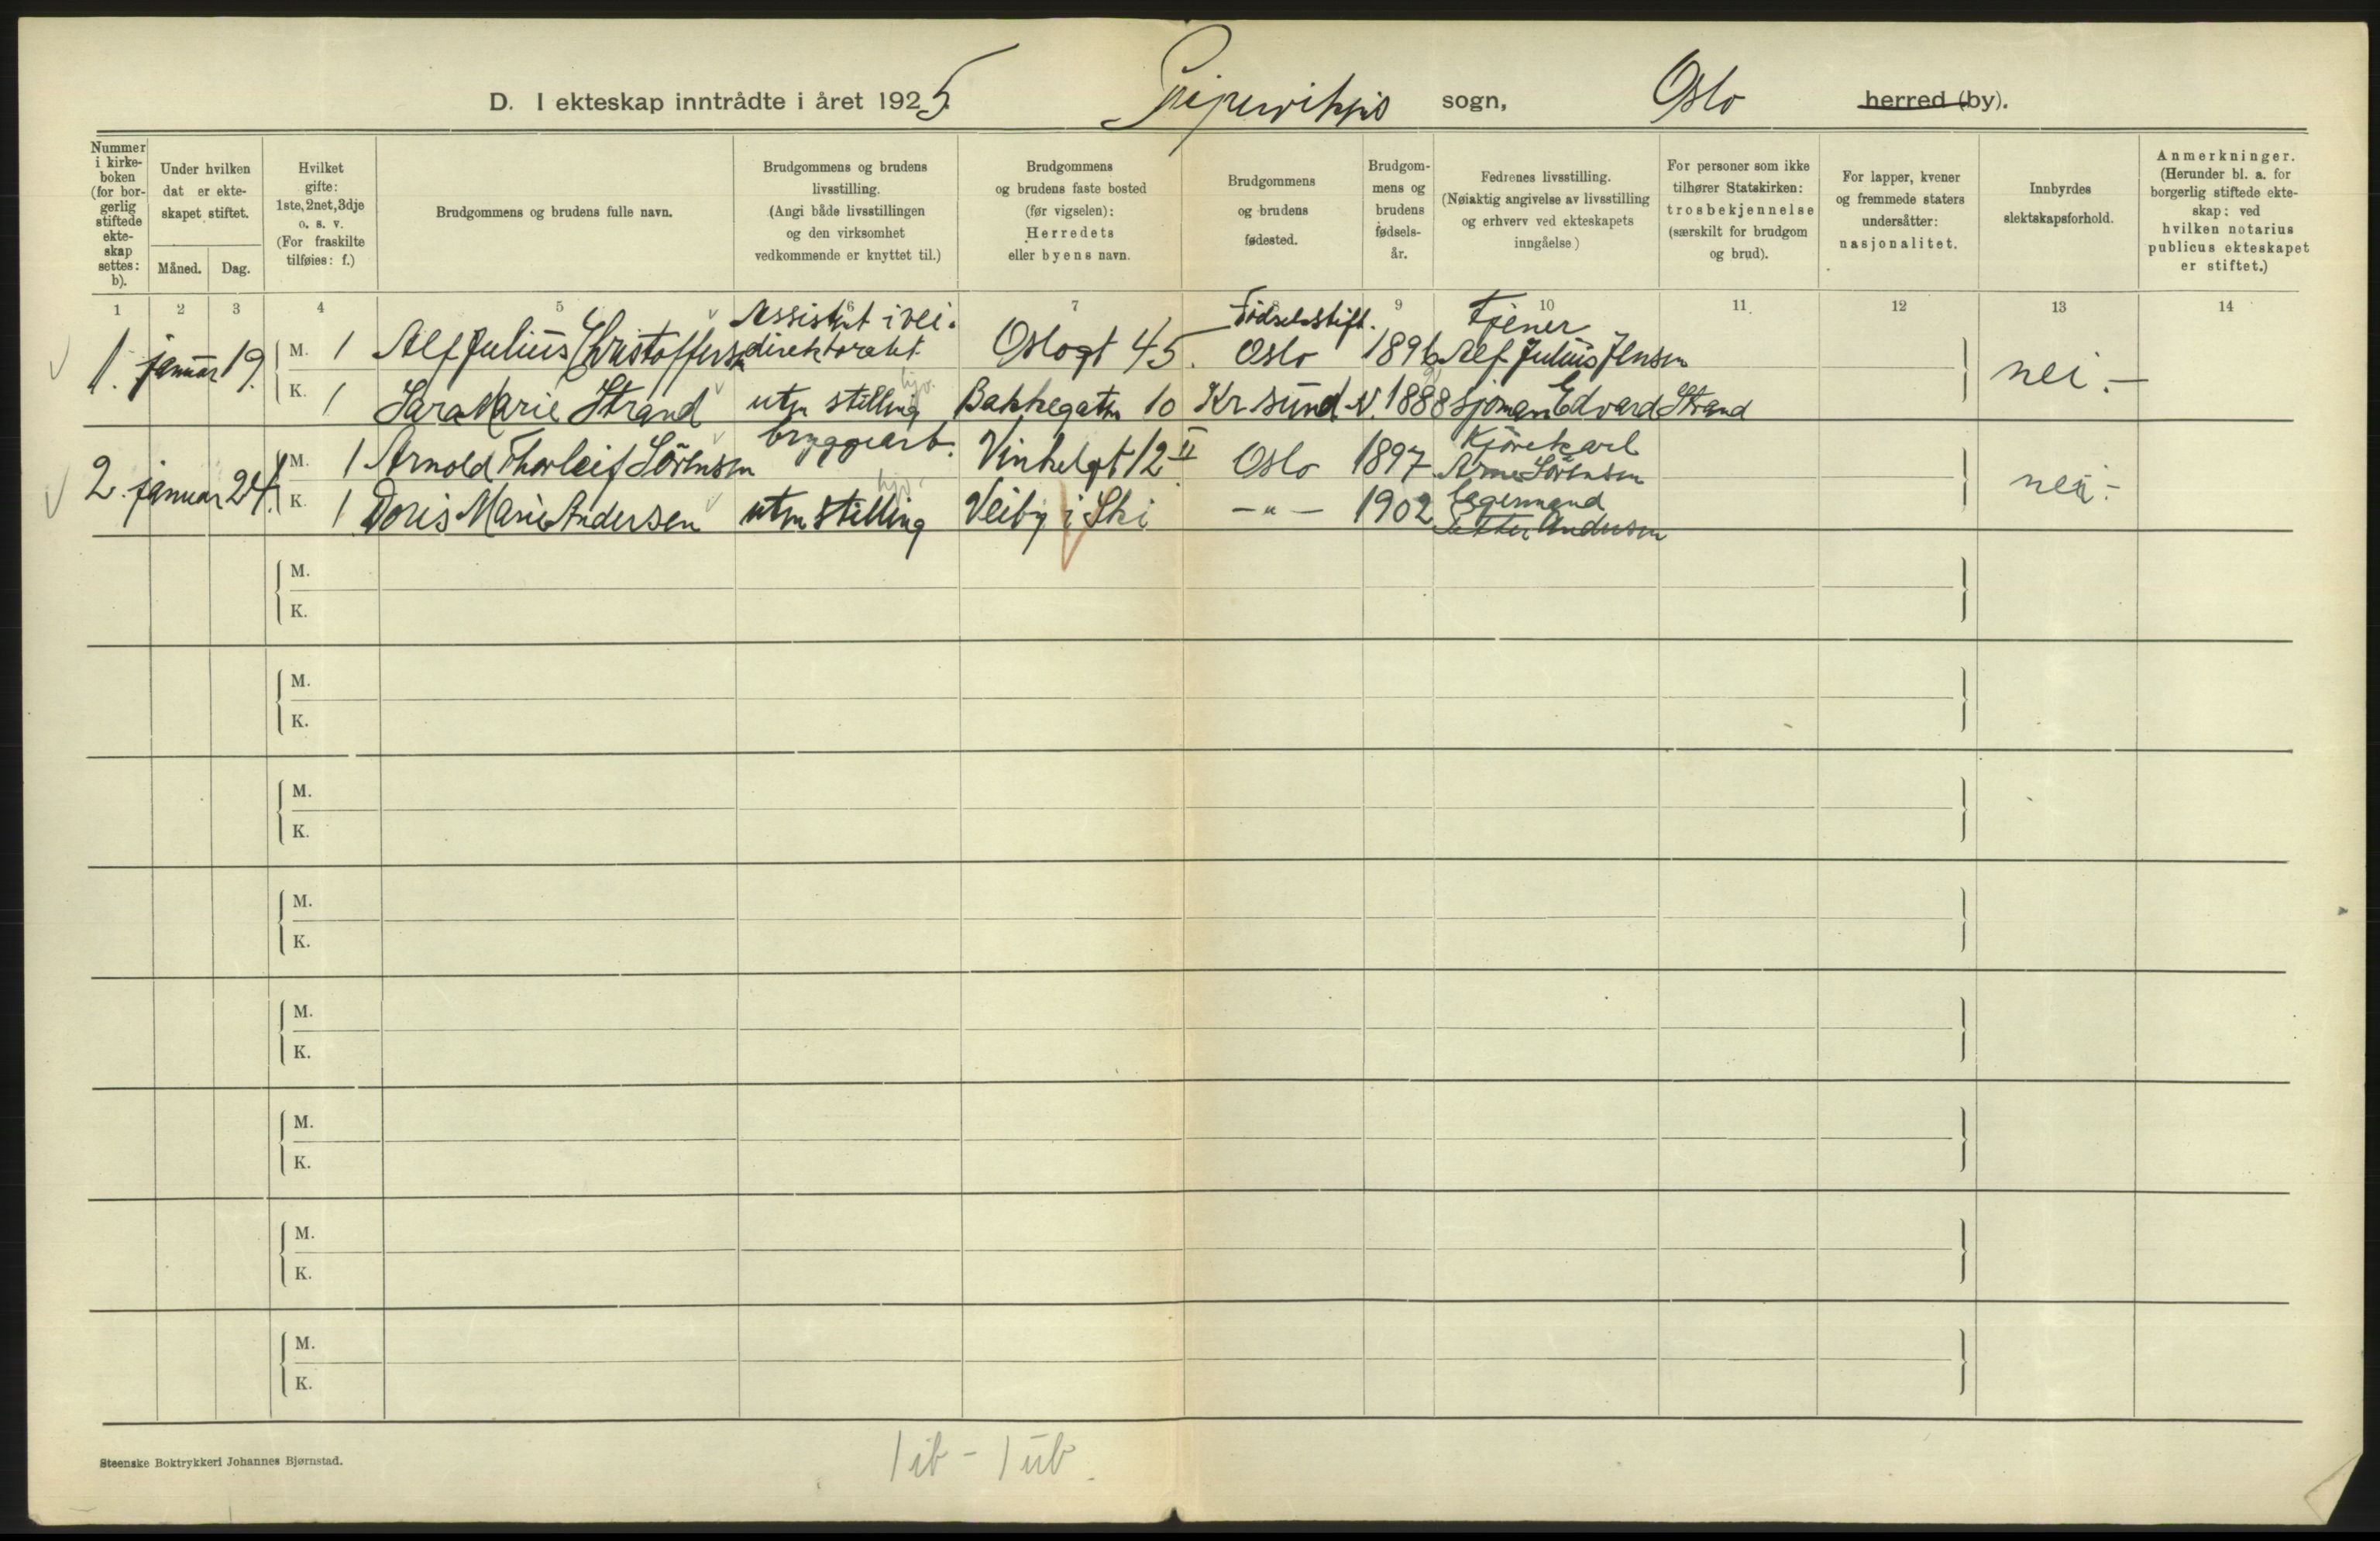 D. I ekteskap inntrådte i året 1925 Pipervikens sogn, Oslo herred (by).
Nummer i kirke-boken (for bor-gerlig stiftede ekte-skap settes: b).
Under hvilken dat er ekte-skapet stiftet.
Måned. Dag.
Hvilket gifte: 1ste, 2net, 3dje o. s. v. (For fraskilte tilføies: f.)
Brudgommens og brudens fulle navn.
Brudgommens og brudens livsstilling. (Angi både livsstillingen og den virksomhet vedkommende er knyttet til.)
Brudgommens og brudens faste bosted (før vigselen): Herredets eller byens navn.
Brudgommens og brudens fødested.
Brudgom-mens og brudens fødsels-år.
Fedrenes livsstilling. (Nøiaktig angivelse av livsstilling og erhverv ved ekteskapets inngåelse)
For personer som ikke tilhører Statskirken: trosbekjennelse (særskilt for brudgom og brud).
For lapper, kvener og fremmede staters undersåtter: nasjonalitet.
Innbyrdes slektskapsforhold.
Anmerkninger. (Herunder bl. a. for borgerlig stiftede ekte-skap: ved hvilken notarius publicus ekteskapet er stiftet.)
1 2 3 4 5 6 7 9 10 11. 12 13 14
Assistent i vei. Fødselsstift. Tjener
1. januar 19. M. 1 Alf Julius Christoffersen direktoratet Oslogt 45. Oslo 1896 Alf Julius Jensen nei.-
K. 1 Sara Marie Strand uten stilling hjv. Bakkegaten 10 Kr.sund N. 1888 Sjoman Edvard Strand
bryggearb. Kjörekarl
2. januar 24. M. 1 Arnold Thorleif Sörensen Vinkelgt 12 II Oslo 1897 Arne Sörensen nei.-
K. 1 Doris Marie Andersen uten stilling hjv. Veiby i Ski -"- 1902 Lagermand
Petter Andersen
M.
K.
M.
K.
M.
K.
M.
K.
M.
K.
M.
K.
M.
K.
M.
K.
Steenske Boktrykkeri Johannes Bjørnstad.
1 ib - 1 ub.